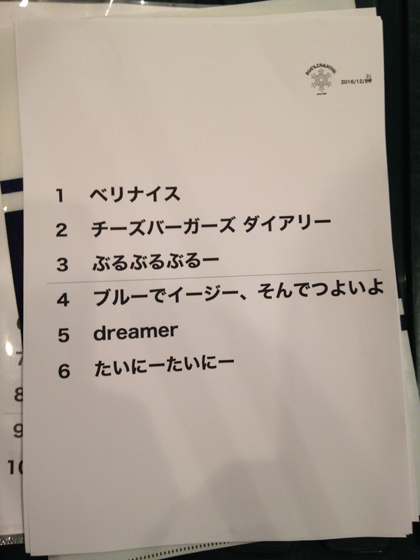 2016/12/
1 ベリナイス
2 チーズバーガーズ ダイアリー
3 ぶるぶるぶるー
4 ブルーでイージー、そんでつよいよ
5 dreamer
6 たいにーたいにー
7
8
9
10